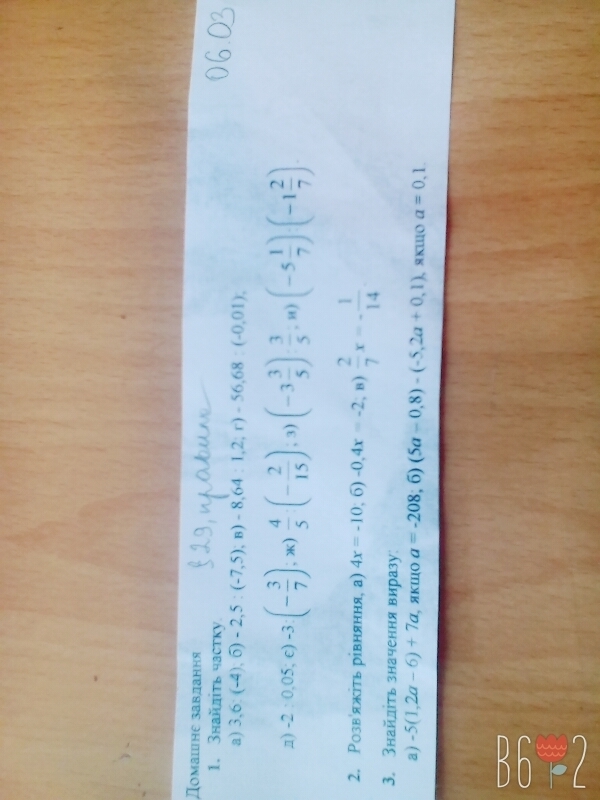 06.03
§ 29, правила
Домашнє завдання
1. Знайдіть частку.
а) 3,6 : (-4); б) - 2,5 : (-7,5); в) - 8,64 : 1,2; г) - 56,68 : (-0,01);
д) -2 : 0,05; є) -3 : (-3/7); ж) 4/5 : (-2/15); з) (-3 3/5) : 3/5; и) (-5 1/7) : (-1 2/7).
2. Розв'яжіть рівняння, а) 4x = -10, б) -0,4x = -2; в) 2/7 x = - 1/14.
3. Знайдіть значення виразу:
а) -5(1,2a – 6) + 7a, якщо a = -208; б) (5a – 0,8) - (-5,2a + 0,1), якщо a = 0,1.
В6 2